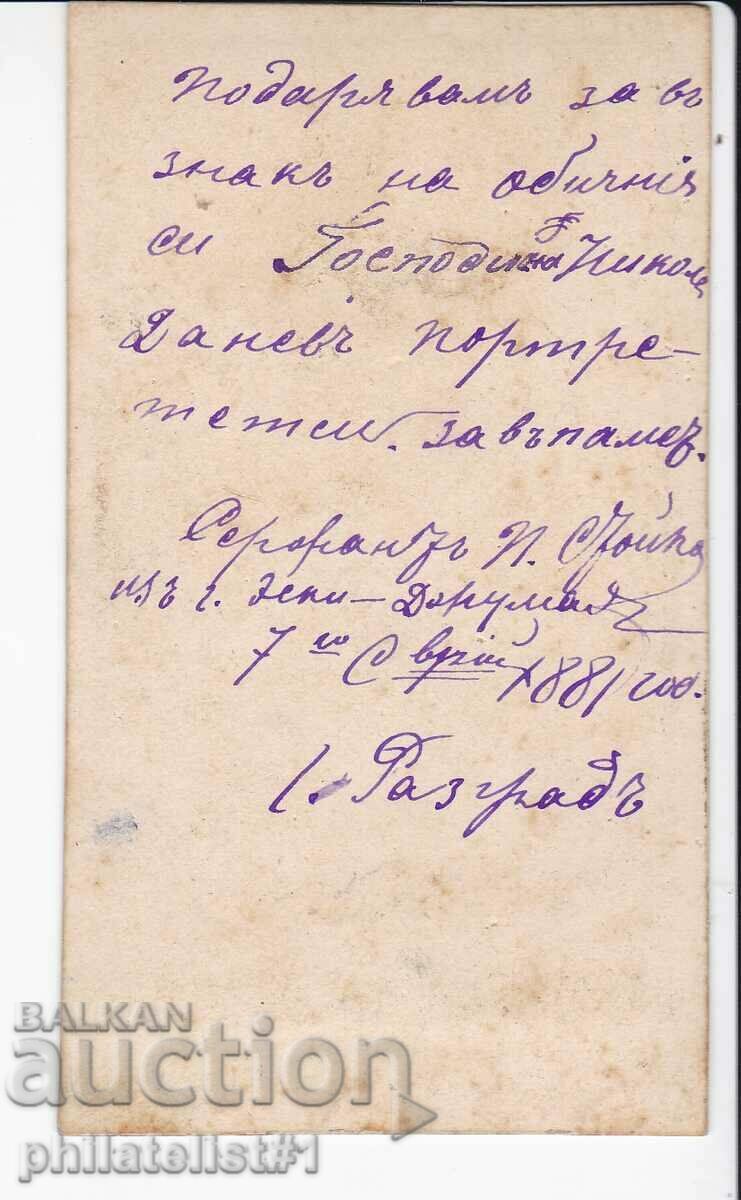 Подарявамъ за въ
знакъ на обичния
си Господина Никола
Даневъ портре-
тетси. за въ памет.
П. Стойко
изъ г. Ески-Джумая
7ий 1881 год.
г. Разградъ
BALKAN
auction
philatelist#1